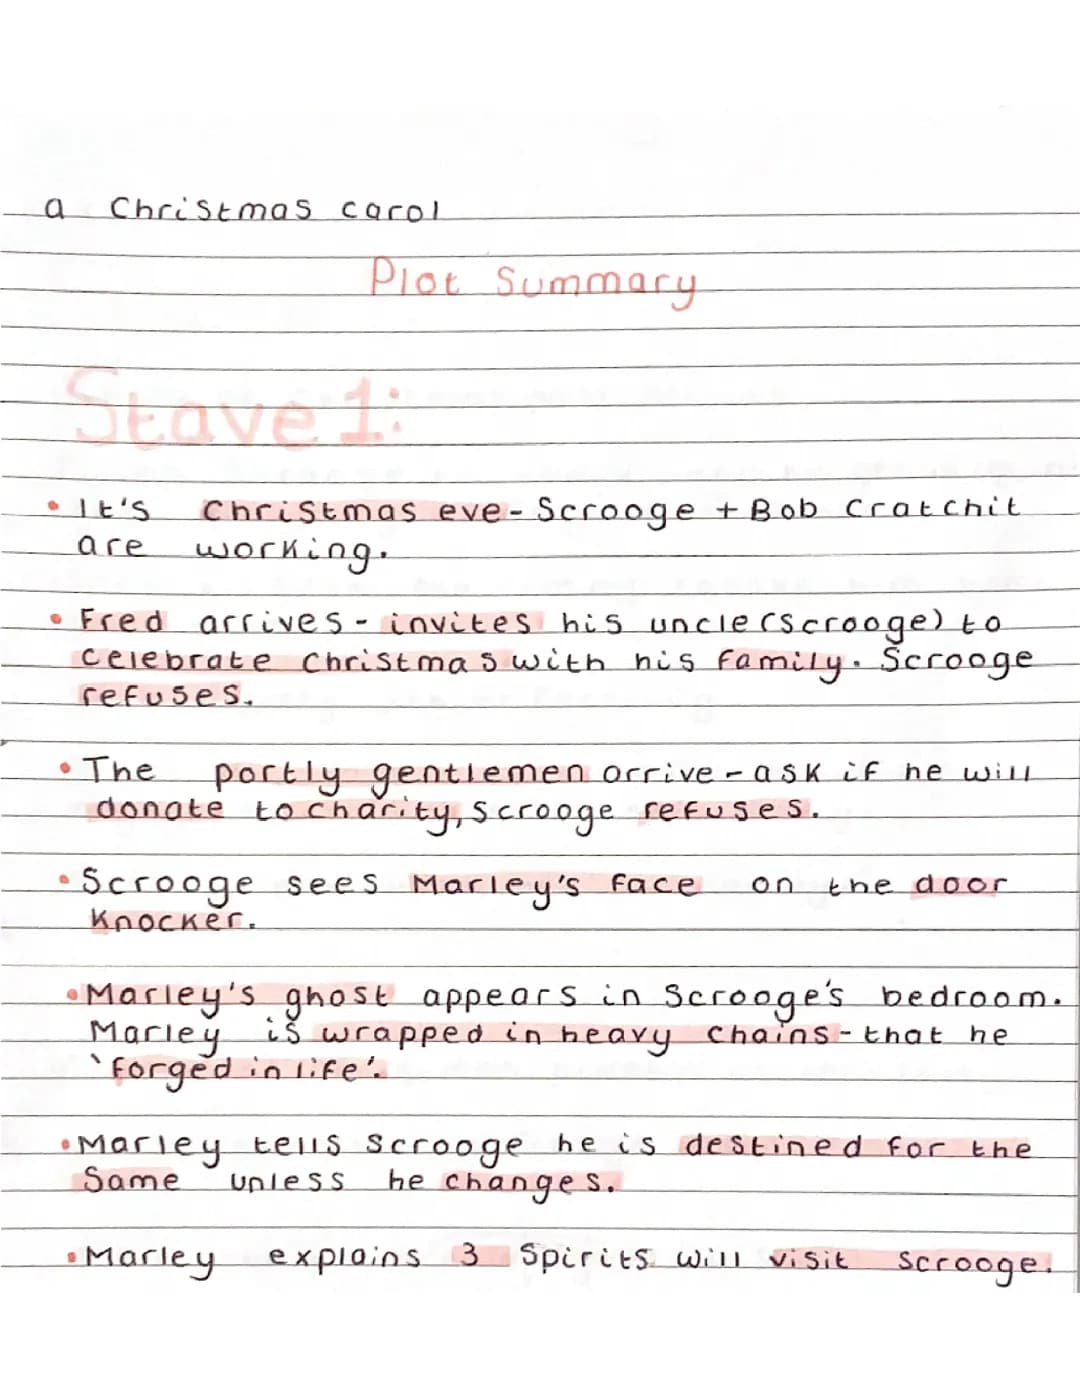 a Christmas carol
Plot Summary
Stave 1:
• It's Christmas eve - Scrooge + Bob Cratchit
are working.
• Fred arrives - invites his uncle (Scrooge) to
celebrate Christmas with his family. Scrooge
refuses.
• The portly gentlemen arrive - ask if he will
donate to charity, Scrooge refuses.
• Scrooge sees Marley's face on the door
knocker.
• Marley's ghost appears in Scrooge's bedroom.
Marley is wrapped in heavy chains - that he
'forged in life'.
• Marley tells Scrooge he is destined for the
same unless he changes.
• Marley explains 3 Spirits will visit Scrooge.